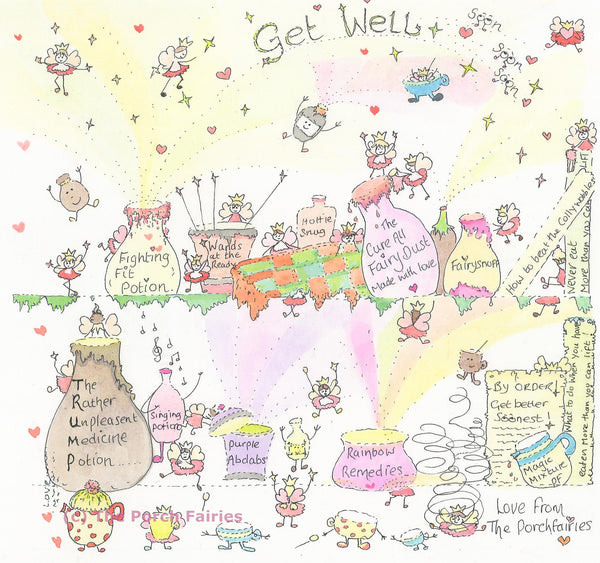 Get Well
Soon
Soon
Soon
Fighting
Fit
Potion
Wands
at the
Ready
Hottie
Snug
The
Cure All
Fairy Dust
Made with love
Fairysnuff
How to beat the Collywobbles
Never eat
More than you can
LIFT
The
Rather
Unpleasent
Medicine
Potion.....
Singing
Potion
Purple
Abdabs
Rainbow
Remedies...
By ORDER!
Get better
Soonest!
Magic
Mixture
What to do when you have
eaten more than you can lift
Love From
The Porchfairies
(c) The Porch Fairies